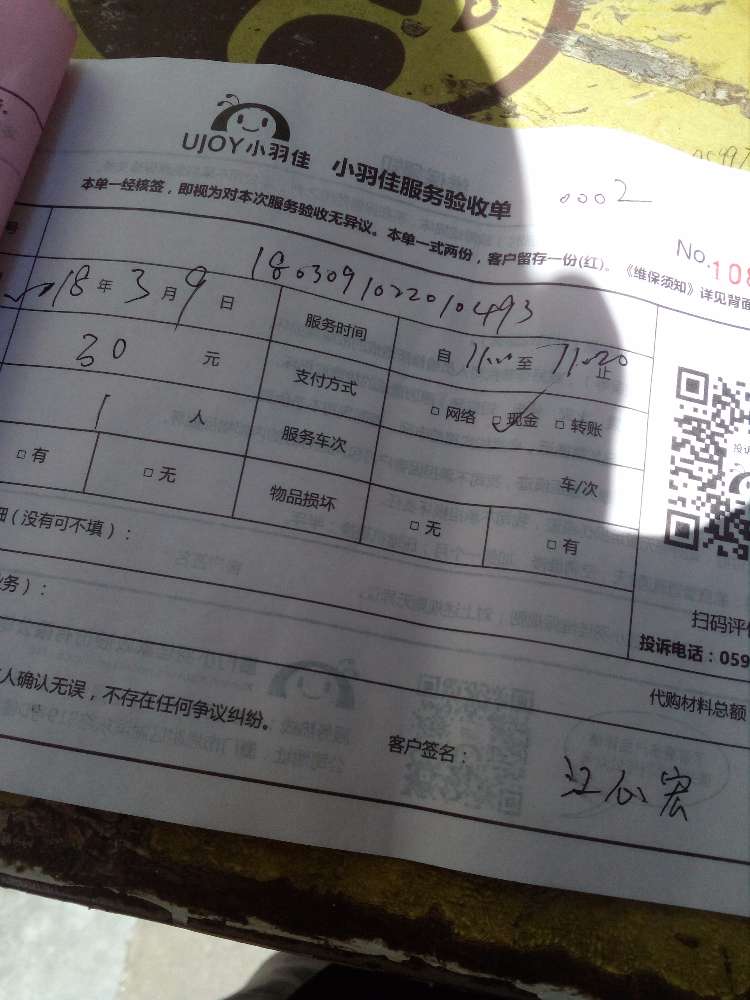 UJOY小羽佳 小羽佳服务验收单
0002
本单一经核签，即视为对本次服务验收无异议。本单一式两份，客户留存一份(红)。《维保须知》详见背面
No.108
号 1803091022010493
18年3月9日 服务时间 自11:00至11:020止
30元 支付方式 □网络 □现金 □转账
1人 服务车次 车/次
□有 □无 物品损坏 □无 □有
细（没有可不填）：
务）：
扫码评价
投诉电话：059
代购材料总额
人确认无误，不存在任何争议纠纷。
客户签名：